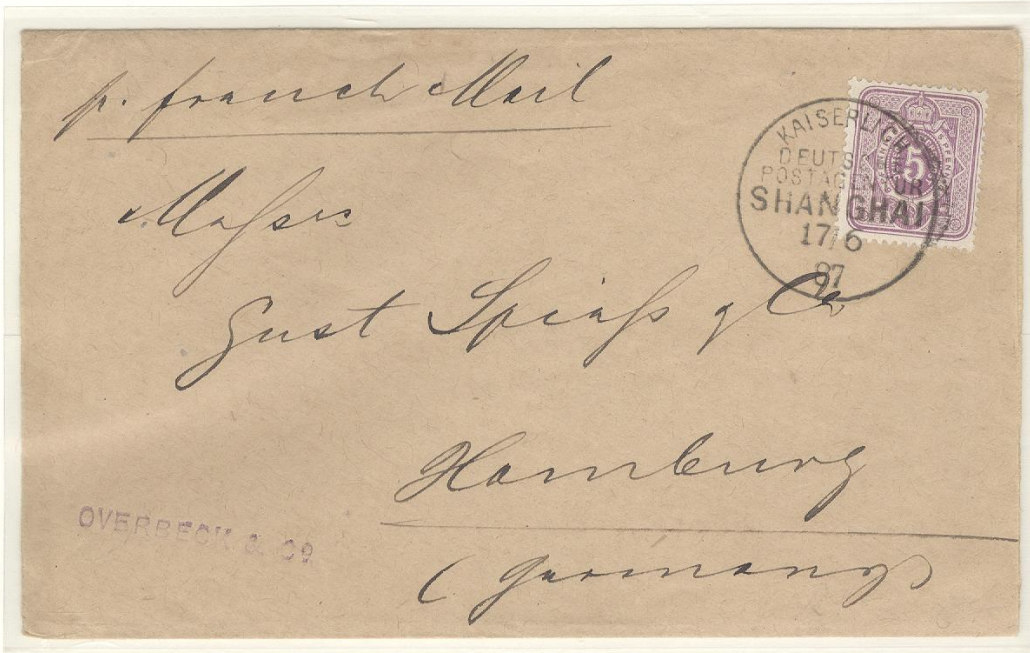 p. french Mail
KAISERLICH
DEUTS
POSTAGENTUR
SHANGHAI
17/6
87
5
Messrs
Gust Spiess & Co
Hamburg
(Germany)
OVERBECK & Co.